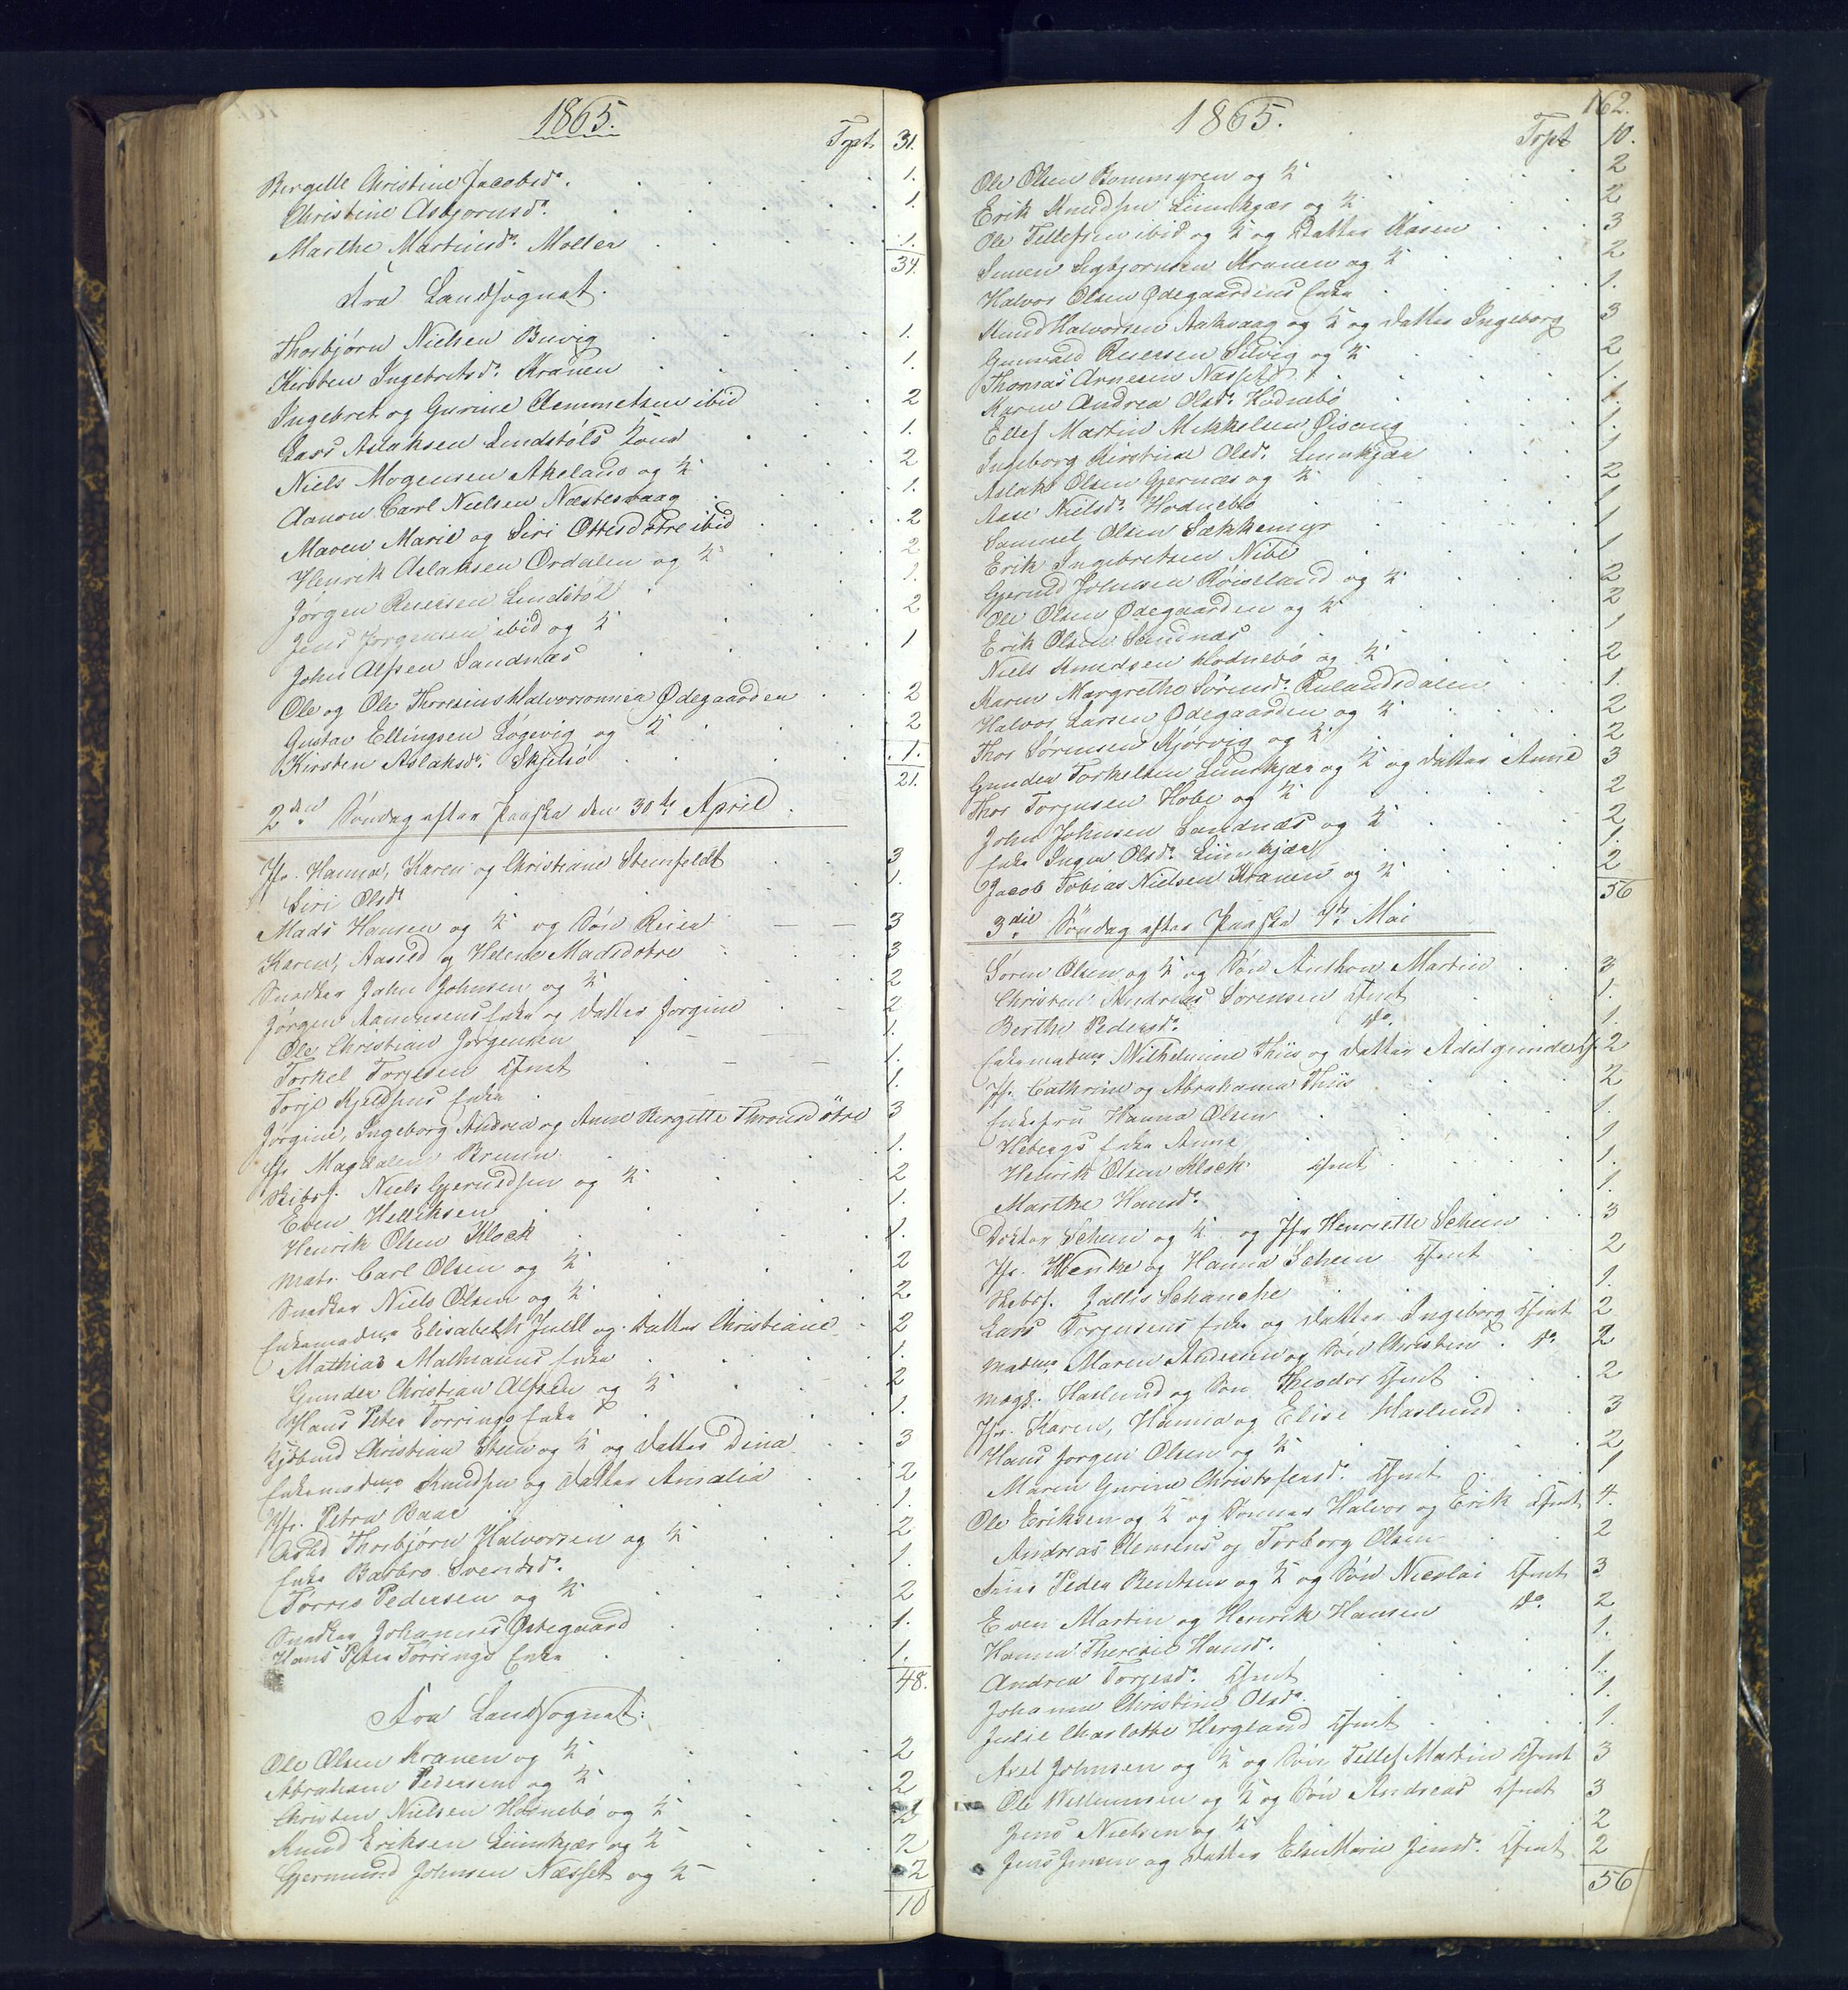 1865.
Trpt. 31.
Bergitte Christine Jacobsd. 1.
Christine Asbjørnsd. 1.
Marthe Martinsd. Møller 1.
34.
Fra Landsognet.
Thorbjørn Nielsen Buvig 1.
Kirsten Ingebretsd. Kranen 1.
Ingebret og Gurine Clemmetsen ibid 2
Lars Aslaksen Lindstøls Kone 1.
Niels Mogensen Akeland og K 2
Aanon Carl Nielsen Næstesvaag 1.
Maren Marie og Siri Ottesdøtre ibid 2
Henrik Aslaksen Ørdalen og K 2
Jørgen Reiersen Lindstøl 1.
Jens Jørgensen ibid og K 2
John Alfsen Sandnæs 1
Ole og Ole Thoresius Halvorsønner Ødegaarden 2
Gustav Ellingsen Løgevig og K 2
Kirsten Aslaksd. Skjelsø 1.
21.
2den Søndag efter Paaske den 30te April.
Jfr. Hanna, Karen og Christiane Steinfeldt 3
Siri Olsd. 1.
Mads Hansen og K og Søn Reier 3
Karen, Aasild og Helene Madsdøtre 3
Snedker John Johnsen og K 2
Jørgen Aanonsens Enke og Datter Jørgine 2
Ole Christian Jørgensen 1.
Torkel Torjesen Cfmt 1.
Torje Kjeldsens Enke 1.
Jørgine, Ingeborg Andrea og Anne Bergitte Thronsdøtre 3
Jfr Magdalene Bruun 1.
Skibsf. Niels Gjeruldsen og K 2
Even Helliksen 1.
Henrik Olsen Klock 1.
Mate. Carl Olsen og K 2
Snedker Niels Olsen og K 2
Enkemadme Elisabeth Juell og Datter Christiane 2
Mathias Mathiasens Enke 1.
Gunder Christian Alfsen og K 2
Hans Peter Torrings Enke 1.
Kjøbmd Christian Steen og K og Datter Dina 3
Enkemadme Knudsen og Datter Amalia 2
Jfr. Petra Baae 1.
Arbd Thorbjørn Halvorsen og K 2
Enke Barbro Svendsd. 1.
Torres Pedersen og K 2
Snedker Johannes Østegaard 1.
Hans Peter Torrings Enke 1.
48.
Fra Landsognet:
Ole Olsen Kranen og K 2
Abraham Pedersen og K 2
Christen Nielsen Hødnebø og K 2
Knud Eriksen Lunnkjær og K 2
Gjermund Johnsen Næsset og K 2
10
1865.
162.
Trpt 10.
Ole Olsen Bommyren og K 2
Erik Knudsen Lunnkjær og K 2
Ole Tellefsen ibid og K og Datter Karen 3
Simen Sigbjørnsen Kranen og K 2
Halvor Olsen Ødegaardens Enke 1.
Knud Halvorsen Aakvaag og K og Datter Ingeborg 3
Gunvald Reiersen Silvig og K 2
Thomas Arnesen Næsset 1.
Karen Andrea Olsd. Hødnebø 1.
Ellef Martin Mikkelsen Øisang 1.
Ingeborg Kirstine Olsd. Lunnkjær 1
Aslak Olsen Gjernes og K 2
Aase Nielsd. Hødnebø 1
Samuel Olsen Sækkemyr 1
Erik Ingebretsen Nibe 1
Gjeruld Johnsen Røiseland og K 2
Ole Olsen Ødegaarden og K 2
Erik Olsen Sandnæs 1
Niels Knudsen Hødnebø og K 2
Karen Margrethe Sørensd. Rulandsdalen 1.
Halvor Larsen Ødegaarden og K 2
Thor Sørensen Kjørvig og K 2
Gunder Torkelsen Lunnkjær og K og Datter Anne 3
Thor Torjusen Hobe og K 2
John Johnsen Sandnæs og K 2
Enke Inger Olsd. Lunnkjær 1.
Jacob Tobias Nielsen Kranen og K 2
56
3die Søndag efter Paaske 7. Mai
Søren Olsen og K og Søn Anthon Martin 3
Christen Andreas Sørensen Cfmt 1.
Berthe Pedersd. do. 1.
Enkemadme Wilhelmine Thiis og Datter Adelgunde Cf 2
Jfr. Cathrine og Abrahama Thiis 2
Enkefru Hanna Olsen 1.
Hebergs Enke Anne 1
Henrik Olsen Klock Cfmt 1.
Marthe Hansd. 1.
Doktor Scheen og K og Jfr Henriette Scheen 3
Jfr. Wenke og Hanna Scheen Cfmt 2
Skibsf. Jallis Schanche 1.
Lars Torjusens Enke og Datter Ingeborg Cfmt 2
Madme Maren Andersen og Søn Christen do. 2
Mægl. Haslund og Søn Theodor Cfmt 2
Jfr. Karen, Hanna og Elise Haslund 3
Hans Jørgen Olsen og K 2
Maren Gurine Christofersd. Cfmt 1
Ole Eriksen og K og Sønner Halvor og Erik Cfmt 4.
Andreas Clemens og Torborg Olsen 2
Jens Peder Bentsen og K og Søn Nicolai Cfmt 3
Even Martin og Henrik Hansen do. 2
Hanna Theresie Hansd. 1.
Andrea Torjesd. Cfmt 1.
Johanne Christine Olsd. 1.
Julie Charlotte Hergland Cfmt 1.
Axel Johnsen og K og Søn Tellef Martin Cfmt 3
Ole Willumsen og K og Søn Andreas Cfmt 3
Jens Nielsen og K 2
Jens Jensen og Datter Else Marie Jensd. Cfmt 2
56